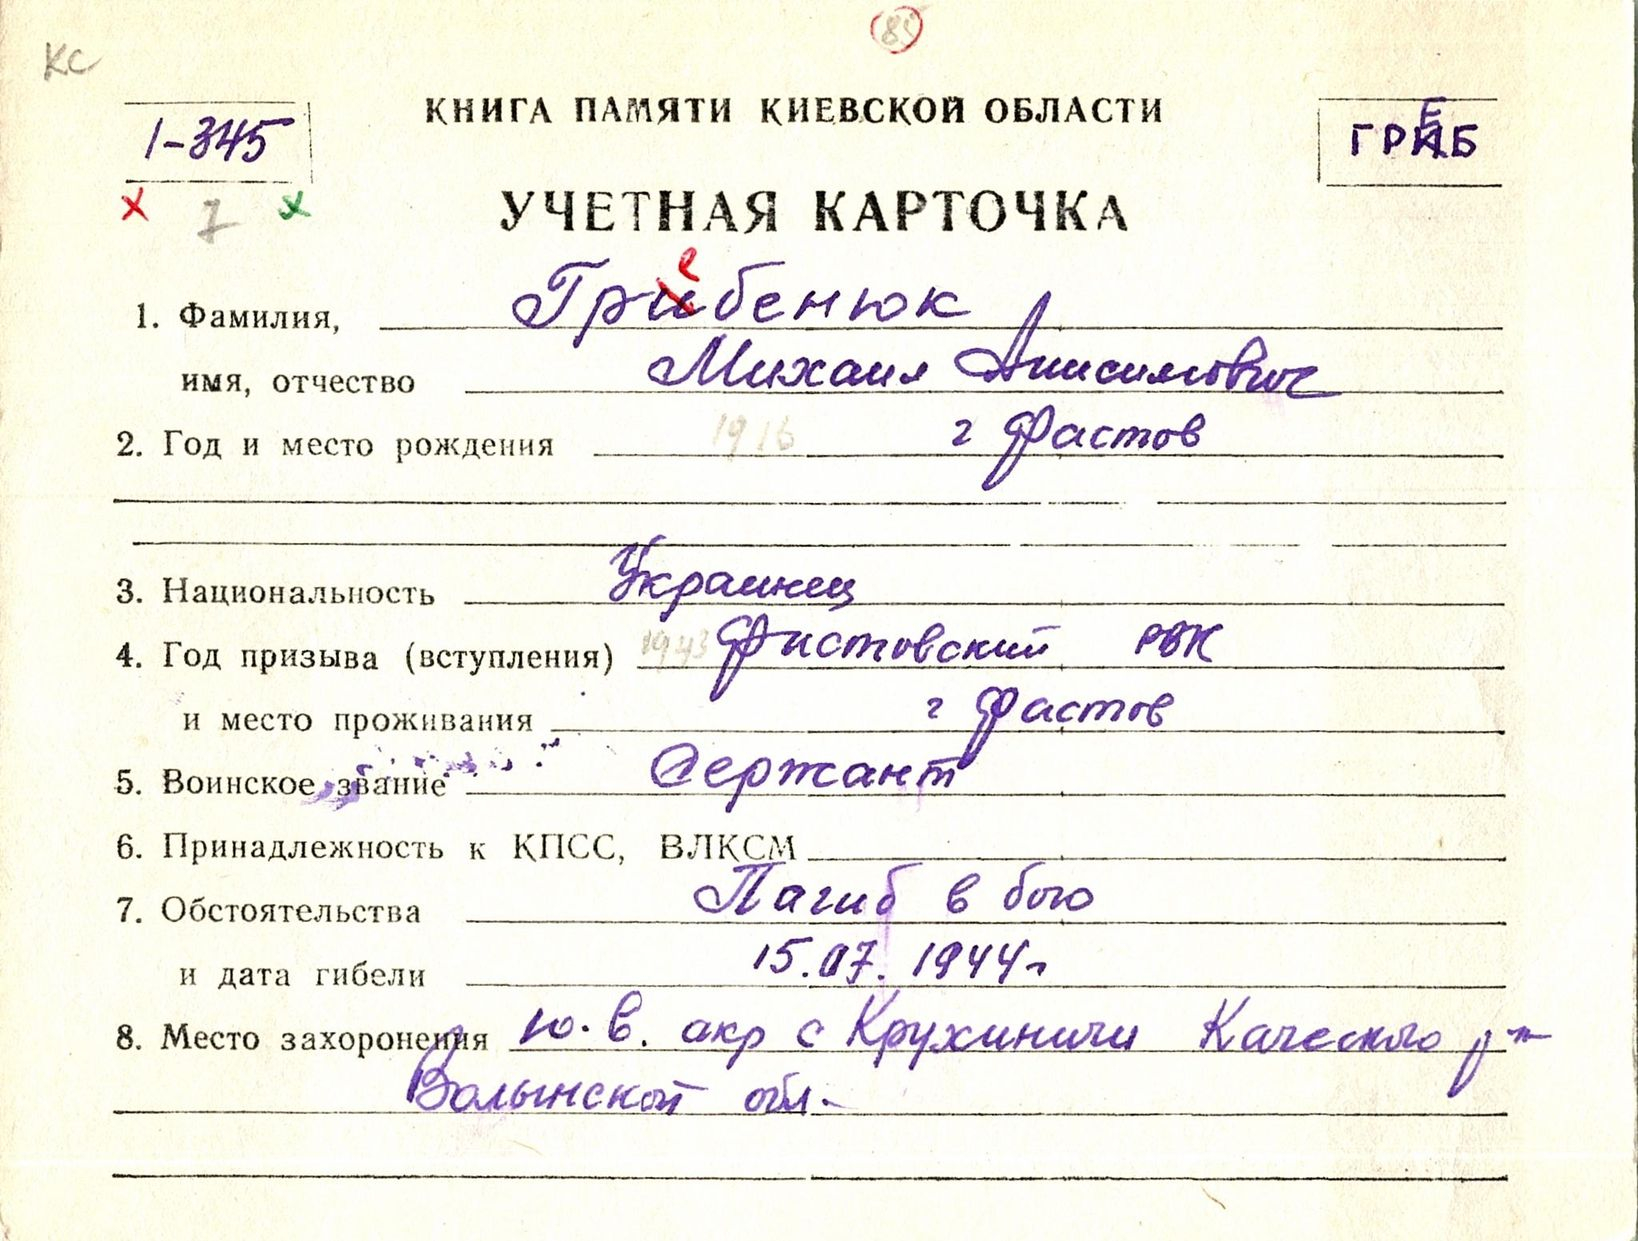 85
КС
КНИГА ПАМЯТИ КИЕВСКОЙ ОБЛАСТИ
1-345
ГРЕБ
7
УЧЕТНАЯ КАРТОЧКА
1. Фамилия, Гребенюк
имя, отчество Михаил Анисимович
2. Год и место рождения 1916 г Фастов
3. Национальность Украинец
4. Год призыва (вступления) 1943 Фастовский РВК
и место проживания г Фастов
5. Воинское звание Сержант
6. Принадлежность к КПСС, ВЛКСМ
7. Обстоятельства Пагиб в бою
и дата гибели 15.07.1944г
8. Место захоронения ю.в. окр с Крухиничи р-н
Волынской обл.